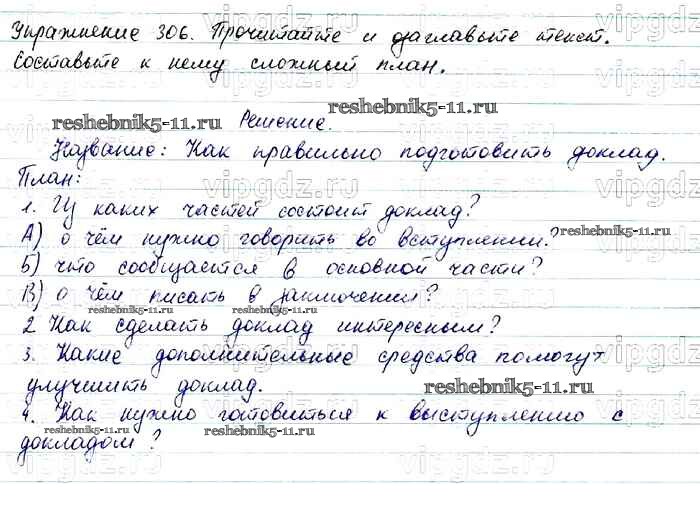 Упражнение 306. Прочитайте и озаглавьте текст.
Составьте к нему сложный план.
reshebnik5-11.ru Решение. reshebnik5-11.ru
Название: Как правильно подготовить доклад.
План:
1. Из каких частей состоит доклад?
А) о чём нужно говорить во вступлении? reshebnik5-11.ru
Б) что сообщается в основной части?
В) о чём писать в заключении?
reshebnik5-11.ru reshebnik5-11.ru
2 Как сделать доклад интересным?
3. Какие дополнительные средства помогут
улучшить доклад. reshebnik5-11.ru
4. Как нужно готовиться к выступлению с
докладом? reshebnik5-11.ru reshebnik5-11.ru
vipgdz.ru